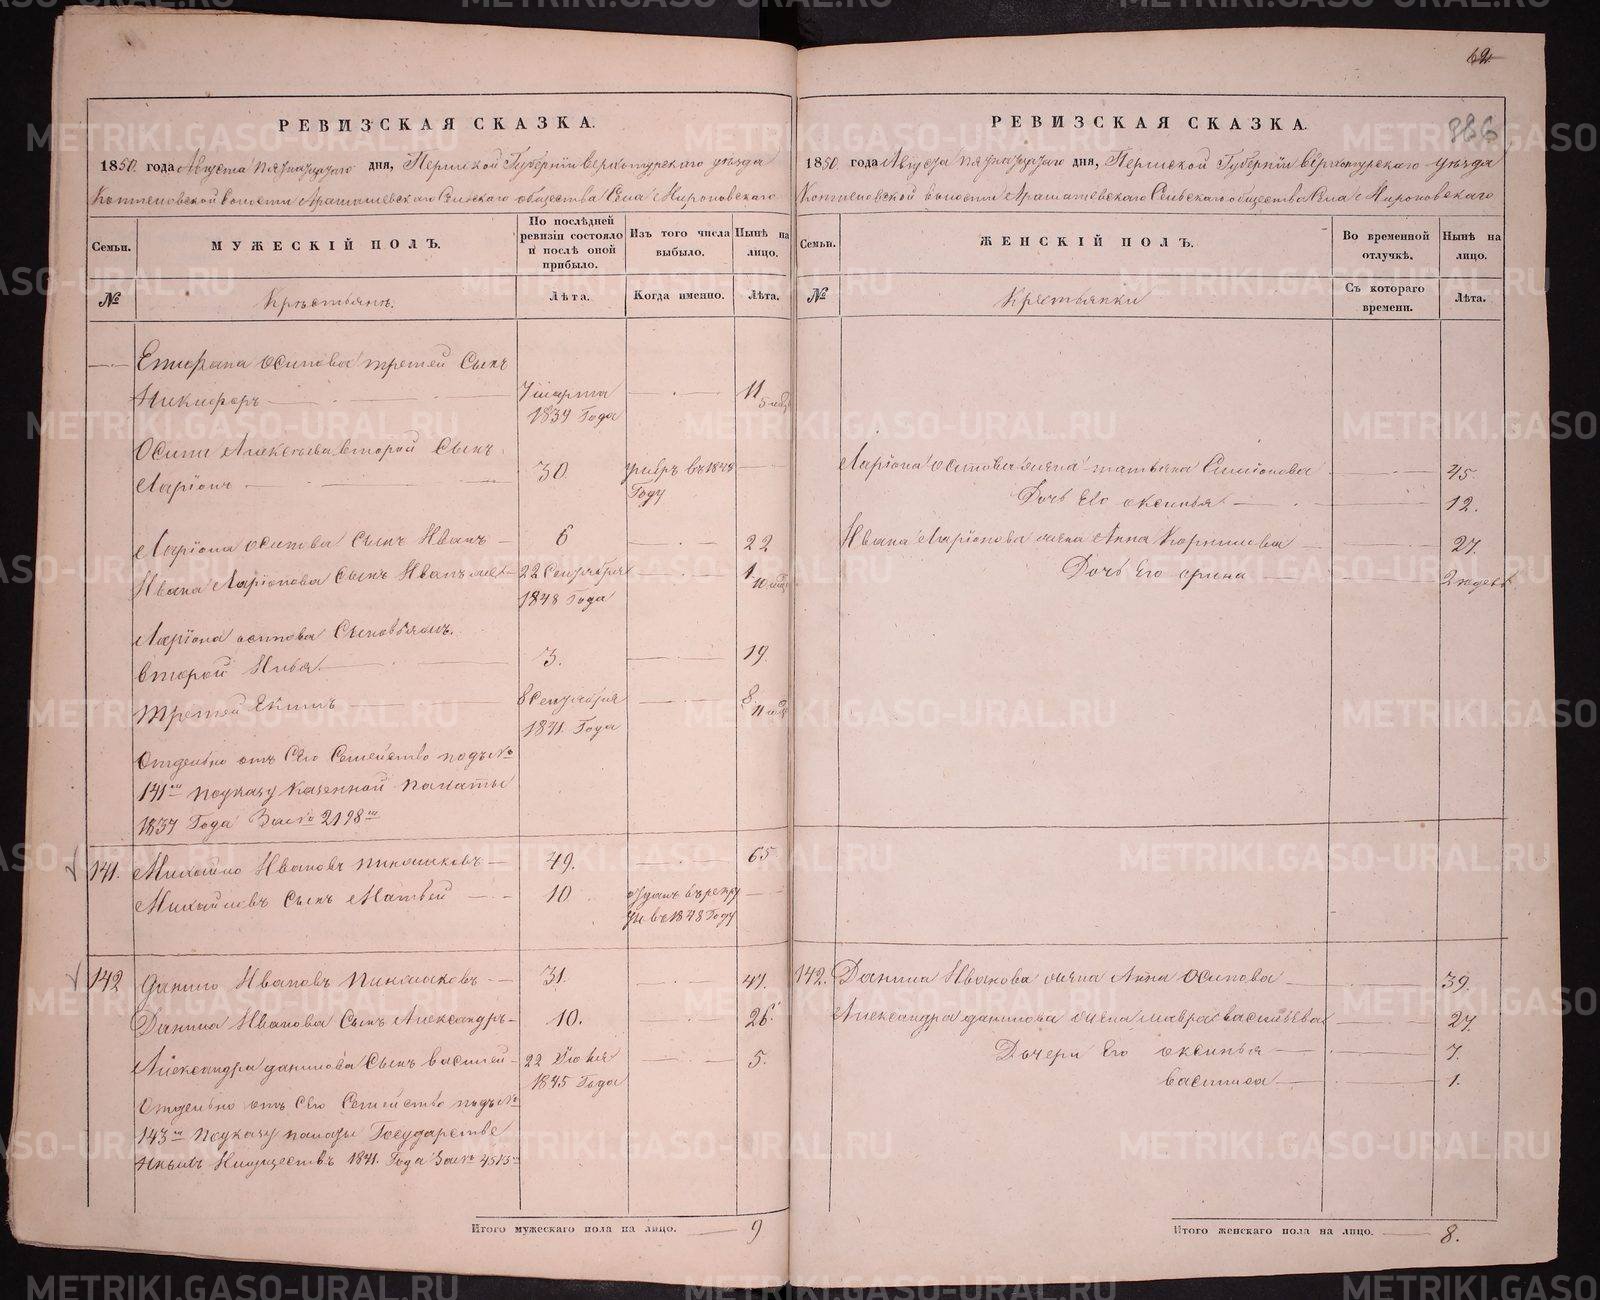 62.
886
РЕВИЗСКАЯ СКАЗКА.
1850 года Августа пятнацатаго дня, Пермской Губернїи верхотурскаго уезда
Коптеловской волости Арамашевскаго Сельскаго общества Села Мироновскаго
Семьи.
МУЖЕСКІЙ ПОЛЪ.
По послѣдней ревизіи состояло и послѣ оной прибыло.
Изъ того числа выбыло.
Нынѣ на лицо.
№
Крестьянъ.
Лѣта.
Когда именно.
Лѣта.
Епифана осипова третей Сынъ
Никифоръ 7 марта 11
1839 Года
Осипа Алексеева второй Сынъ
Ларїонъ 30 умеръ въ 1848
Году
Ларїона осипова Сынъ Иванъ 6 22
Ивана Ларїонова Сынъ Иванъ 22 Сентября 1
1848 Года
Ларїона осипова Сыновья
второй Илья 3. 19
третей Екимъ 8 Сентября 8
1841 Года
Отделено отъ Сего Семейство подъ №
141 по указу Казенной палаты
1837 Года За № 2198
141. Михайло Ивановъ 49. 65
Михайловъ Сынъ Матвей 10 отданъ въ рекру
ты въ 1848 Году
142 Данило Ивановъ 31. 47.
Данила Иванова Сынъ Александръ 10. 26
Александра данилова Сынъ василей 22 5.
1845 Года
Отделено отъ Сего Семейство подъ №
143 по указу палаты Государстве
нныхъ Имуществъ 1841 Года За № 4513
Итого мужескаго пола на лицо. 9
РЕВИЗСКАЯ СКАЗКА.
1850 года Августа пятнацатаго дня, Пермской Губернїи верхотурскаго уезда
Коптеловской волости Арамашевскаго Сельскаго общества Села Мироновскаго
Семьи.
ЖЕНСКІЙ ПОЛЪ.
Во временной отлучкѣ.
Нынѣ на лицо.
№
Крестьянки
Съ котораго времени.
Лѣта.
Ларїона осипова жена татьяна Симїонова 45.
Дочь Его оксинья 12.
Ивана Ларїонова жена Анна Корнилова 27.
Дочь Его орина 2
142. Данила Иванова жена Анна осипова 39.
Александра данилова жена мавра васильева 27.
Дочери Его оксинья 7.
василиса 1.
Итого женскаго пола на лицо. 8.
METRIKI.GASO-URAL.RU